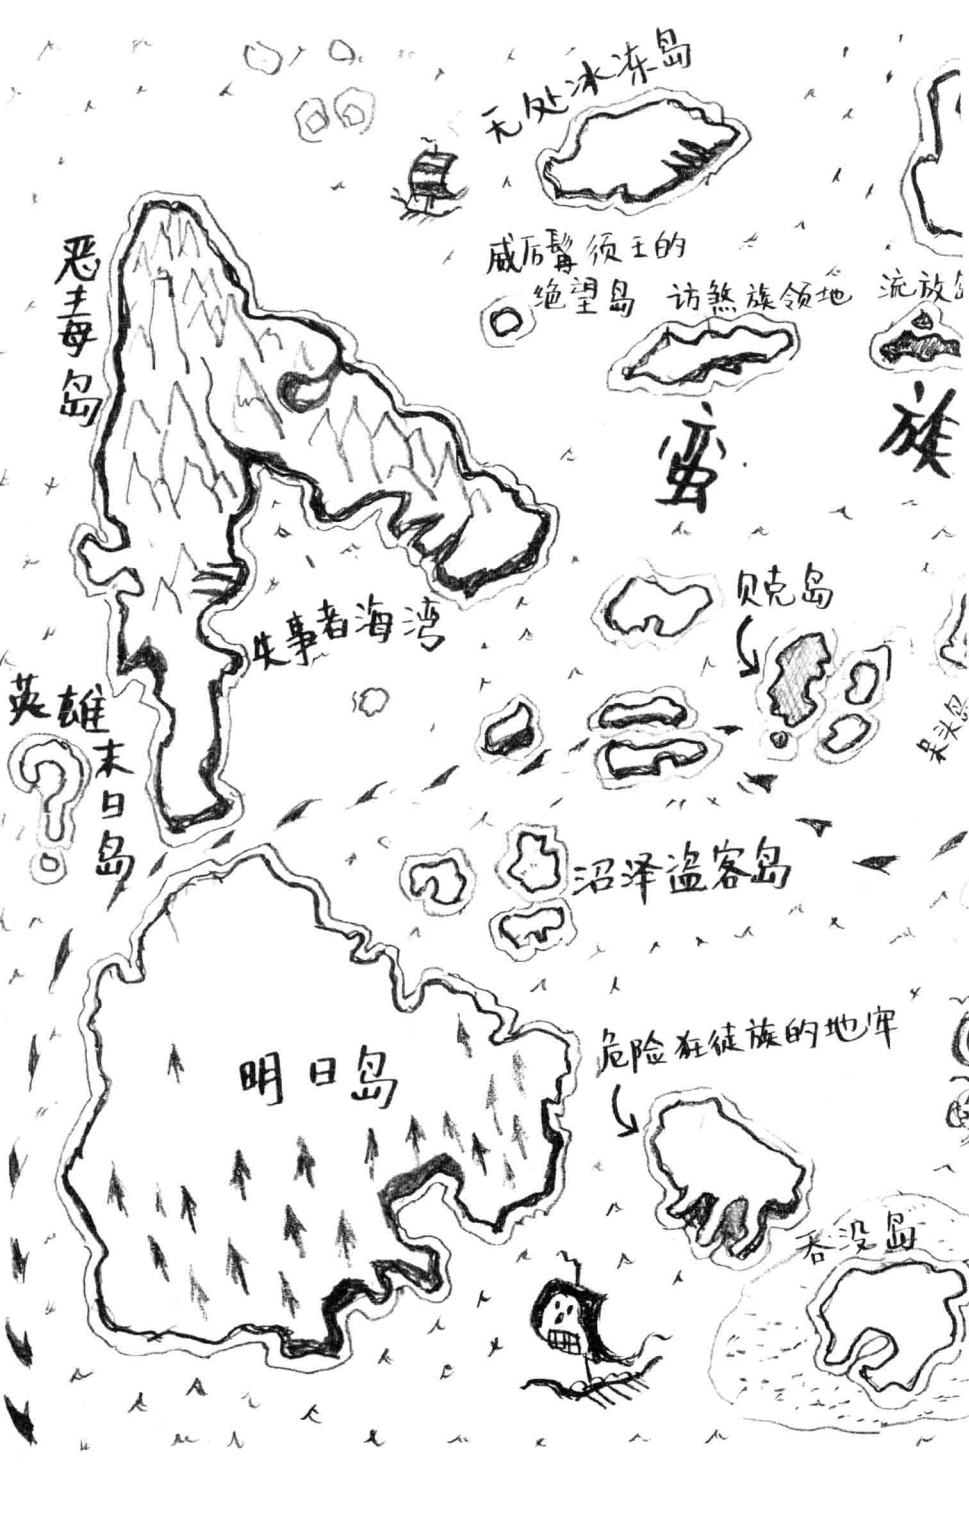 无处冰冻岛
恶主母岛
威后髯须王的
绝望岛
访煞族领地
流放岛
蛮族
失事者海湾
贝克岛
英雄
末日岛
呆头岛
沼泽盗客岛
明日岛
危险狂徒族的地牢
吞没岛